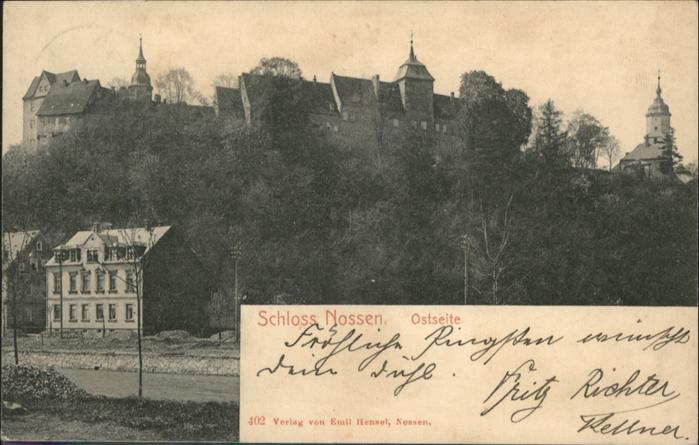 Schloss Nossen. Ostseite.
Fröhliche Pfingsten wünscht
Dein
Fritz Richter
Kellner.
402 Verlag von Emil Hensel, Nossen.